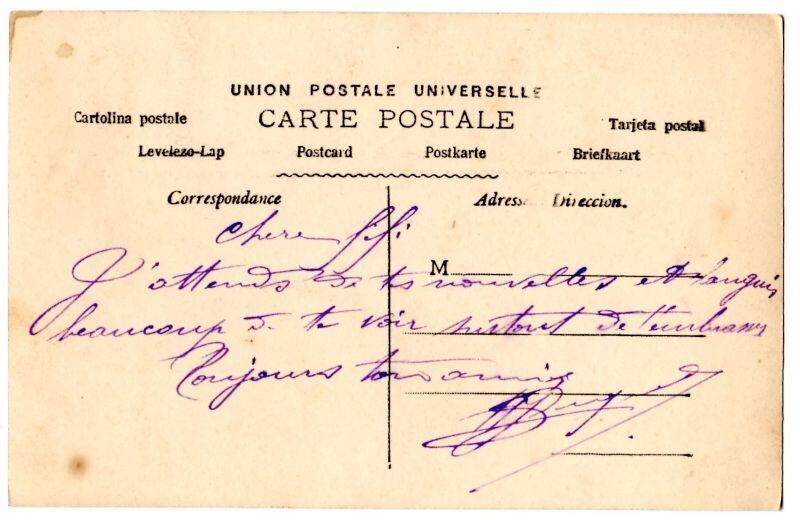 UNION POSTALE UNIVERSELLE
CARTE POSTALE
Cartolina postale
Tarjeta postal
Levelezo-Lap Postcard Postkarte Briefkaart
Correspondance
Adresse Direccion.
Chere fifi
M
J'attends de tes nouvelles et languis
beaucoup de te voir surtout de t'embrasser
Toujours ton amie